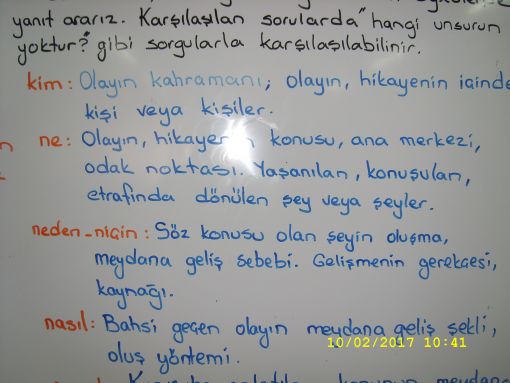 yanıt ararız. Karşılaşılan sorularda "hangi unsurun
yoktur? gibi sorgularla karşılaşılabilinir.
kim: Olayın kahramanı; olayın, hikayenin içinde
kişi veya kişiler.
ne: Olayın, hikayenin konusu, ana merkezi,
odak noktası. Yaşanılan, konuşulan,
etrafında dönülen şey veya şeyler.
neden-niçin: Söz konusu olan şeyin oluşma,
meydana geliş sebebi. Gelişmenin gerekçesi,
kaynağı.
nasıl: Bahsi geçen olayın meydana geliş şekli,
oluş yöntemi.
10/02/2017 10:41